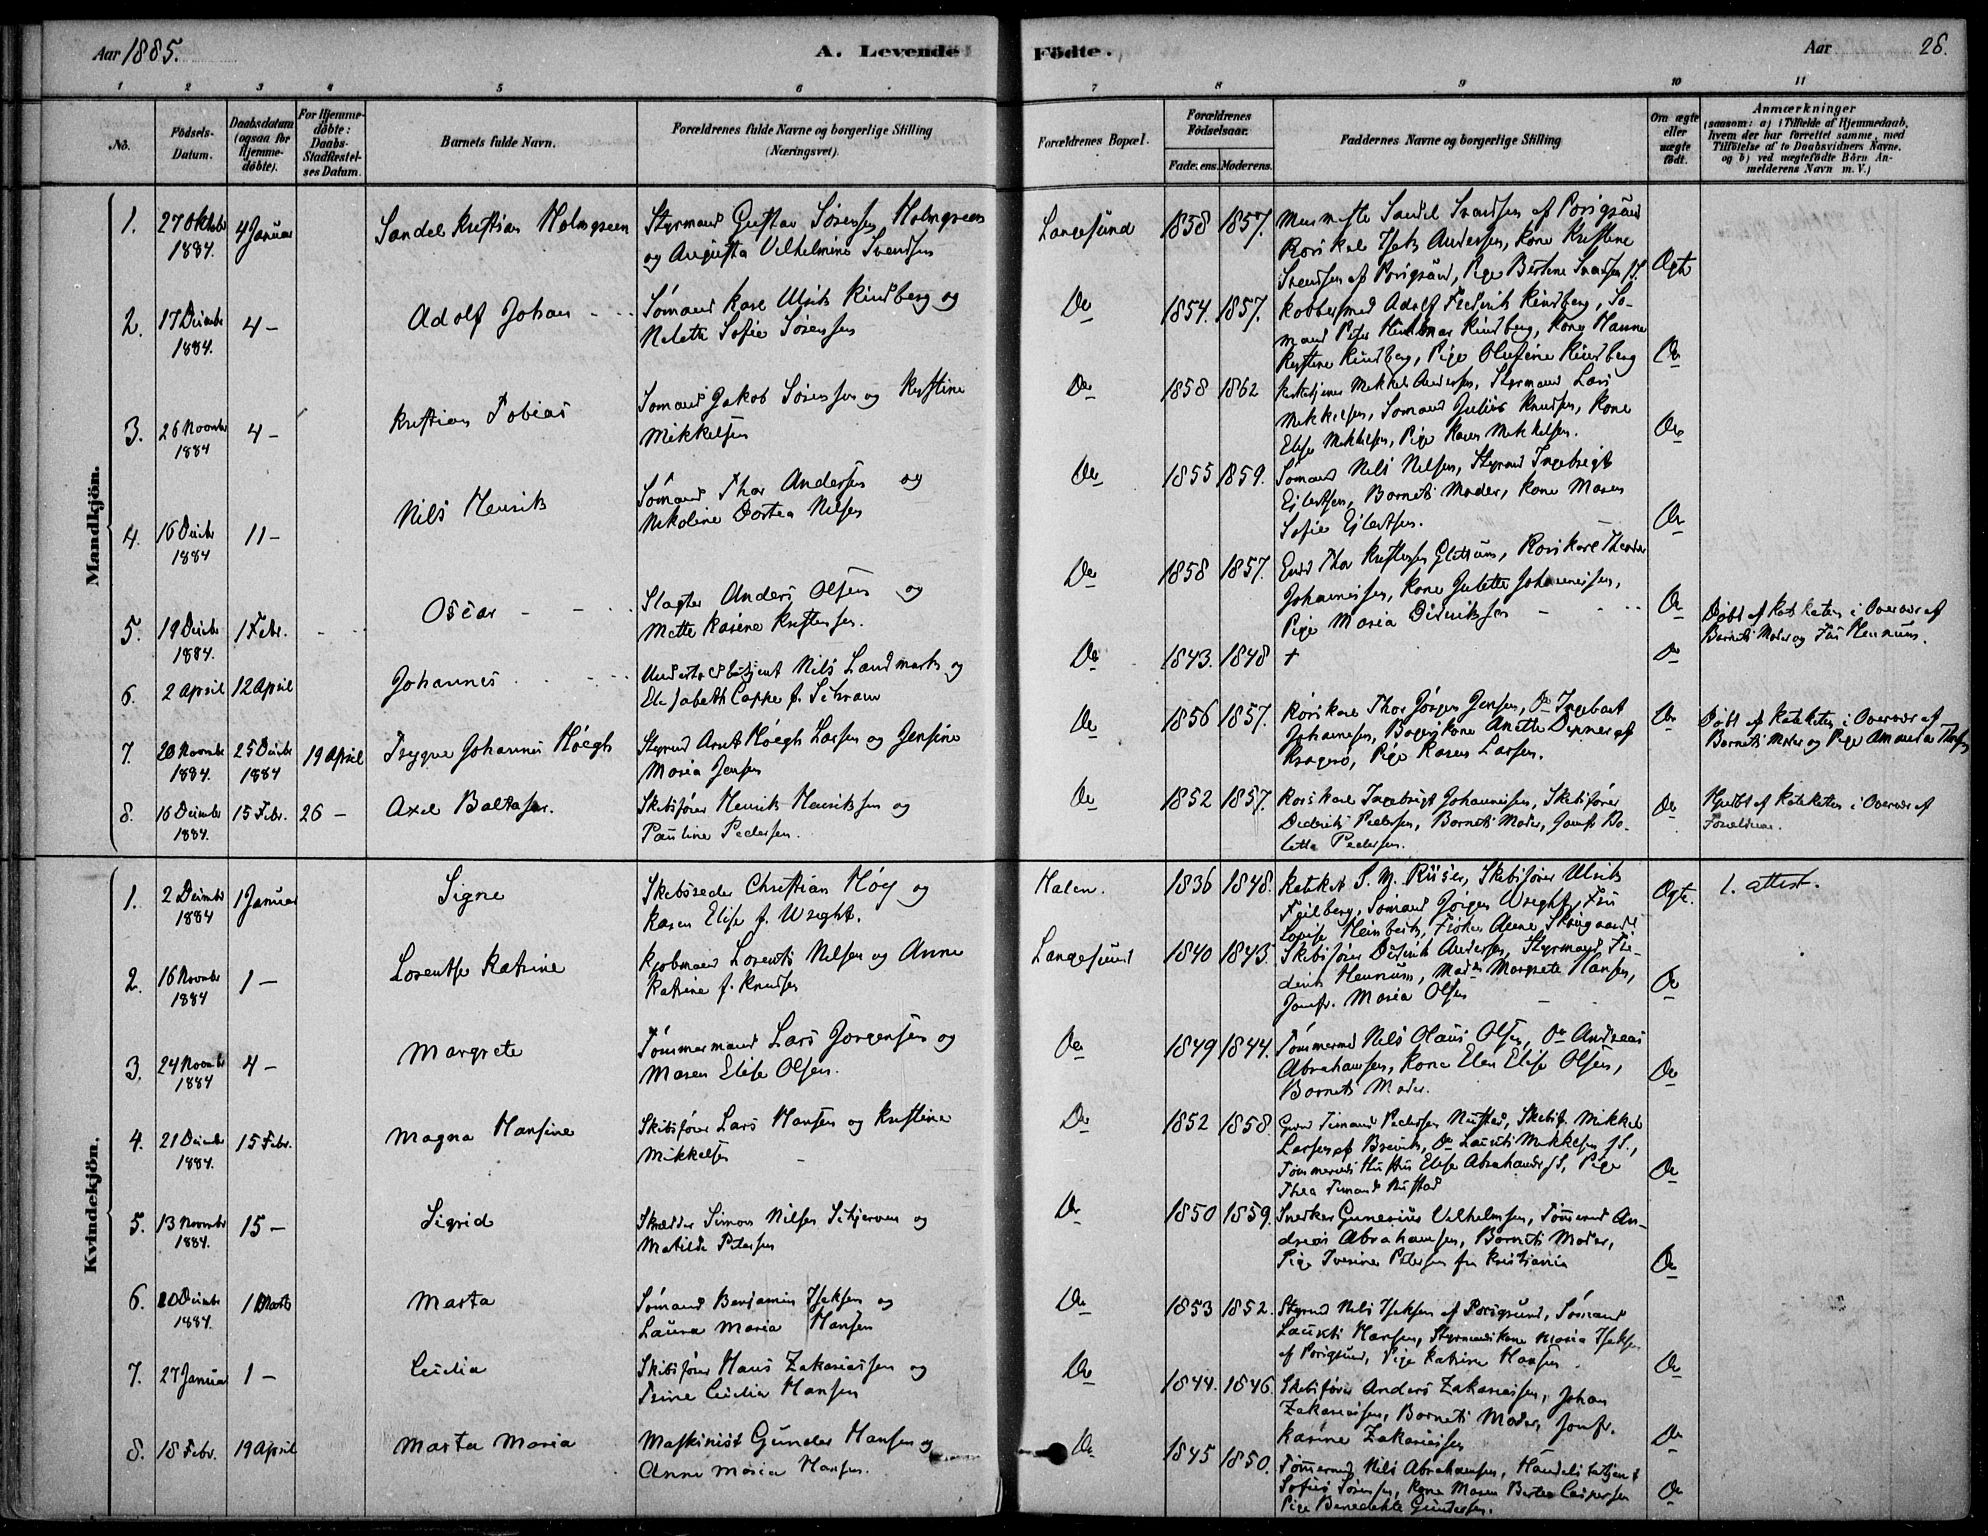 Aar 1885.
A. Levende Födte.
Aar
28.
1 2 3 4 5 6 7 8 9 10 11
No.
Födsels-Datum.
Daabsdatum (ogsaa for Hjemmedöbte).
For Hjemmedöbte: Daabs-Stadfæstelses Datum.
Barnets fulde Navn.
Forældrenes fulde Navne og borgerlige Stilling
(Næringsvei).
Forældrenes Bopæl.
Forældrenes Födselsaar.
Faderens. Moderens.
Faddernes Navne og borgerlige Stilling
Om ægte eller uægte født.
Anmærkninger
(saasom: a) i Tilfælde af Hjemmedaab,
hvem der har forrettet samme, med
Tilföielse af to Daabsvidners Navne.
og b) ved uægtefödte Börn Anmelderens Navn m. V.)
Mandkjön.
1. 27 Oktober 1884. 4 Januar Sandel Kristian Holmgreen
Styrmand Gustav Sörensen Holmgreen
og Augusta Vilhelmine Svendsen
Langesund 1838 1857.
Sandel Svendsen af Porsgrund
Andersen, Kone Kristine
Svendsen af Porsgrund, Pige Bertine Svendsen
Ægte
2. 17 Decmbr 1884. 4 – Adolf Johan
Sömand Karl Ulrik Kindberg og
Sofie Sörensen
Do 1854. 1857.
Kobbersmed Adolf Fredrik Kindberg, Sömand
Peter Kindberg, Kone Hanne
Kristine Kindberg, Pige Olufine Kindberg
Do
3. 26 Novmbr 1884 4 – Kristian Tobias
Sömand Jakob Sörensen og Kristine
Mikkelsen
Do 1858 1862
Mikkel Andersen, Styrmand Lars
Mikkelsen, Sömand Julius Knudsen, Kone
Elise Mikkelsen, Pige Karen Mikkelsen.
Do
4. 16 Decbr 1884 11 – Nils Henrik
Sömand Thor Andersen og
Nikoline Dortea Nilsen
Do 1855 1859.
Sömand Nils Nilsen, Styrmd Ingebregt
Eilertsen, Barnets Moder, Kone Maren
Sofie Eilertsen.
Do
5. 19 Decmbr 1884. 1 Febr. Oscar
Slagter Anders Olsen og
Mette Karine Kristensen.
Do 1858 1857.
Thor Kristensen
Johannesen, Kone Julette Johannesen,
Pige Maria Didriksen
Do
6. 2 April 12 April Johannes
Nils Landmark og
Elisabeth Cappe f. Schram
Do 1843. 1848 +
Do
Döbt af Kateketen i Overvær af
Barnets Moder og Fru Hennum.
7. 20 Novmbr 1884. 25 Decmbr 1884 19 April Trygve Johannes Höegh
Styrmd Arnt Höegh Larsen og Jensine
Maria Jensen
Do 1856 1857.
Thor Jörgen Jensen, Do Ingebret
Johannesen, Kone Anette af
Kragerö, Pige Karen Larsen.
Do
Döbt af Kateketen i Overvær af
Barnets Moder og Pige Amanda
8. 16 Decmbr 1884. 15 Febr. 26 – Axel Baltasar.
Skibsförer Henrik Henriksen og
Pauline Pedersen.
Do 1852 1857.
Ingebrigt Johannesen, Skibsförer
Diderik Pedersen, Barnets Moder, Jomfr Bolette
Pedersen.
Do
Hjdöbt af Kateketen i Overvær af
Forældrene.
Kvindekjön.
1. 2 Decmbr 1884 1 Januar Signe
Skibsreder Christian Höeg og
Karen Elise f. Wright.
Halen. 1836 1848.
Kateket S. M. Riiser, Skibsförer Ulrik
Feilberg, Sömand Jörgen Wright, Fru
Lovise, Fröken Anne
Ægte.
1. attest.
2. 16 Novmbr 1884 1 – Lorentse Katrine
Kjöbmand Lorents Nilsen og Anne
Katrine f. Knudsen
Langesund 1840 1843.
Skibsförer Didrik Andersen, Styrmand Fredrik
Hennum, Madm Margrete Hansen,
Jomfr. Maria Olsen
Do
3. 24 Novmbr 1884 4 – Margrete
Tömmermand Lars Jörgensen og
Maren Elise Olsen.
Do 1849 1844.
Tömmermd Nils Olaus Olsen, Do Andreas
Abrahamsen, Kone Elen Elise Olsen,
Barnets Moder.
Do
4. 21 Decmbr 1884. 15 Febr. Magna Hansine
Skibsförer Lars Hansen og Kristine
Mikkelsen
Do 1852 1858.
Pedersen Rustad, Skibsf. Mikkel
Larsen af Brevik, Do Laurits Mikkelsen,
Tömmermds Hustru Elise, Pige
Thea Rustad
Do
5. 13 Novmbr 1884. 15 – Sigrid
Skrædder Simon Nilsen Schjerven og
Matilde Petersen
Do 1850 1859.
Snedker Gunerius Vilhelmsen, Tömmermd Andreas
Abrahamsen, Barnets Moder,
Pige Iverine Petersen fra Kristiania
Do
6. 20 Decmbr 1884. 1 Marts Marta
Sömand Benjamin Isaksen og
Laura Maria Hansen
Do 1853 1852.
Styrmd Nils Isaksen af Porsgrund, Sömand
Laurits Hansen, Styrmands Kone Maria Isaksen
af Porsgrund, Pige Katrine Hansen.
Do
7. 27 Januar 1 – Cecilia
Skibsförer Hans Zakariassen og
Trine Cecilia Hansen
Do 1844. 1846.
Skibsförer Anders Zakariassen, Johan
Zakariassen, Barnets Moder, Jomfr.
Karine Zakariassen
Do
8. 18 Febr. 19 April Marta Maria
Maskinist Gunder Hansen og
Anne Maria Hansen.
Do 1845 1850.
Tömmermd Nils Abrahamsen, Handelsbetjent
Sofus Sörensen, Kone Maren Casparsen
Pige Benedikte Gundersen.
Do